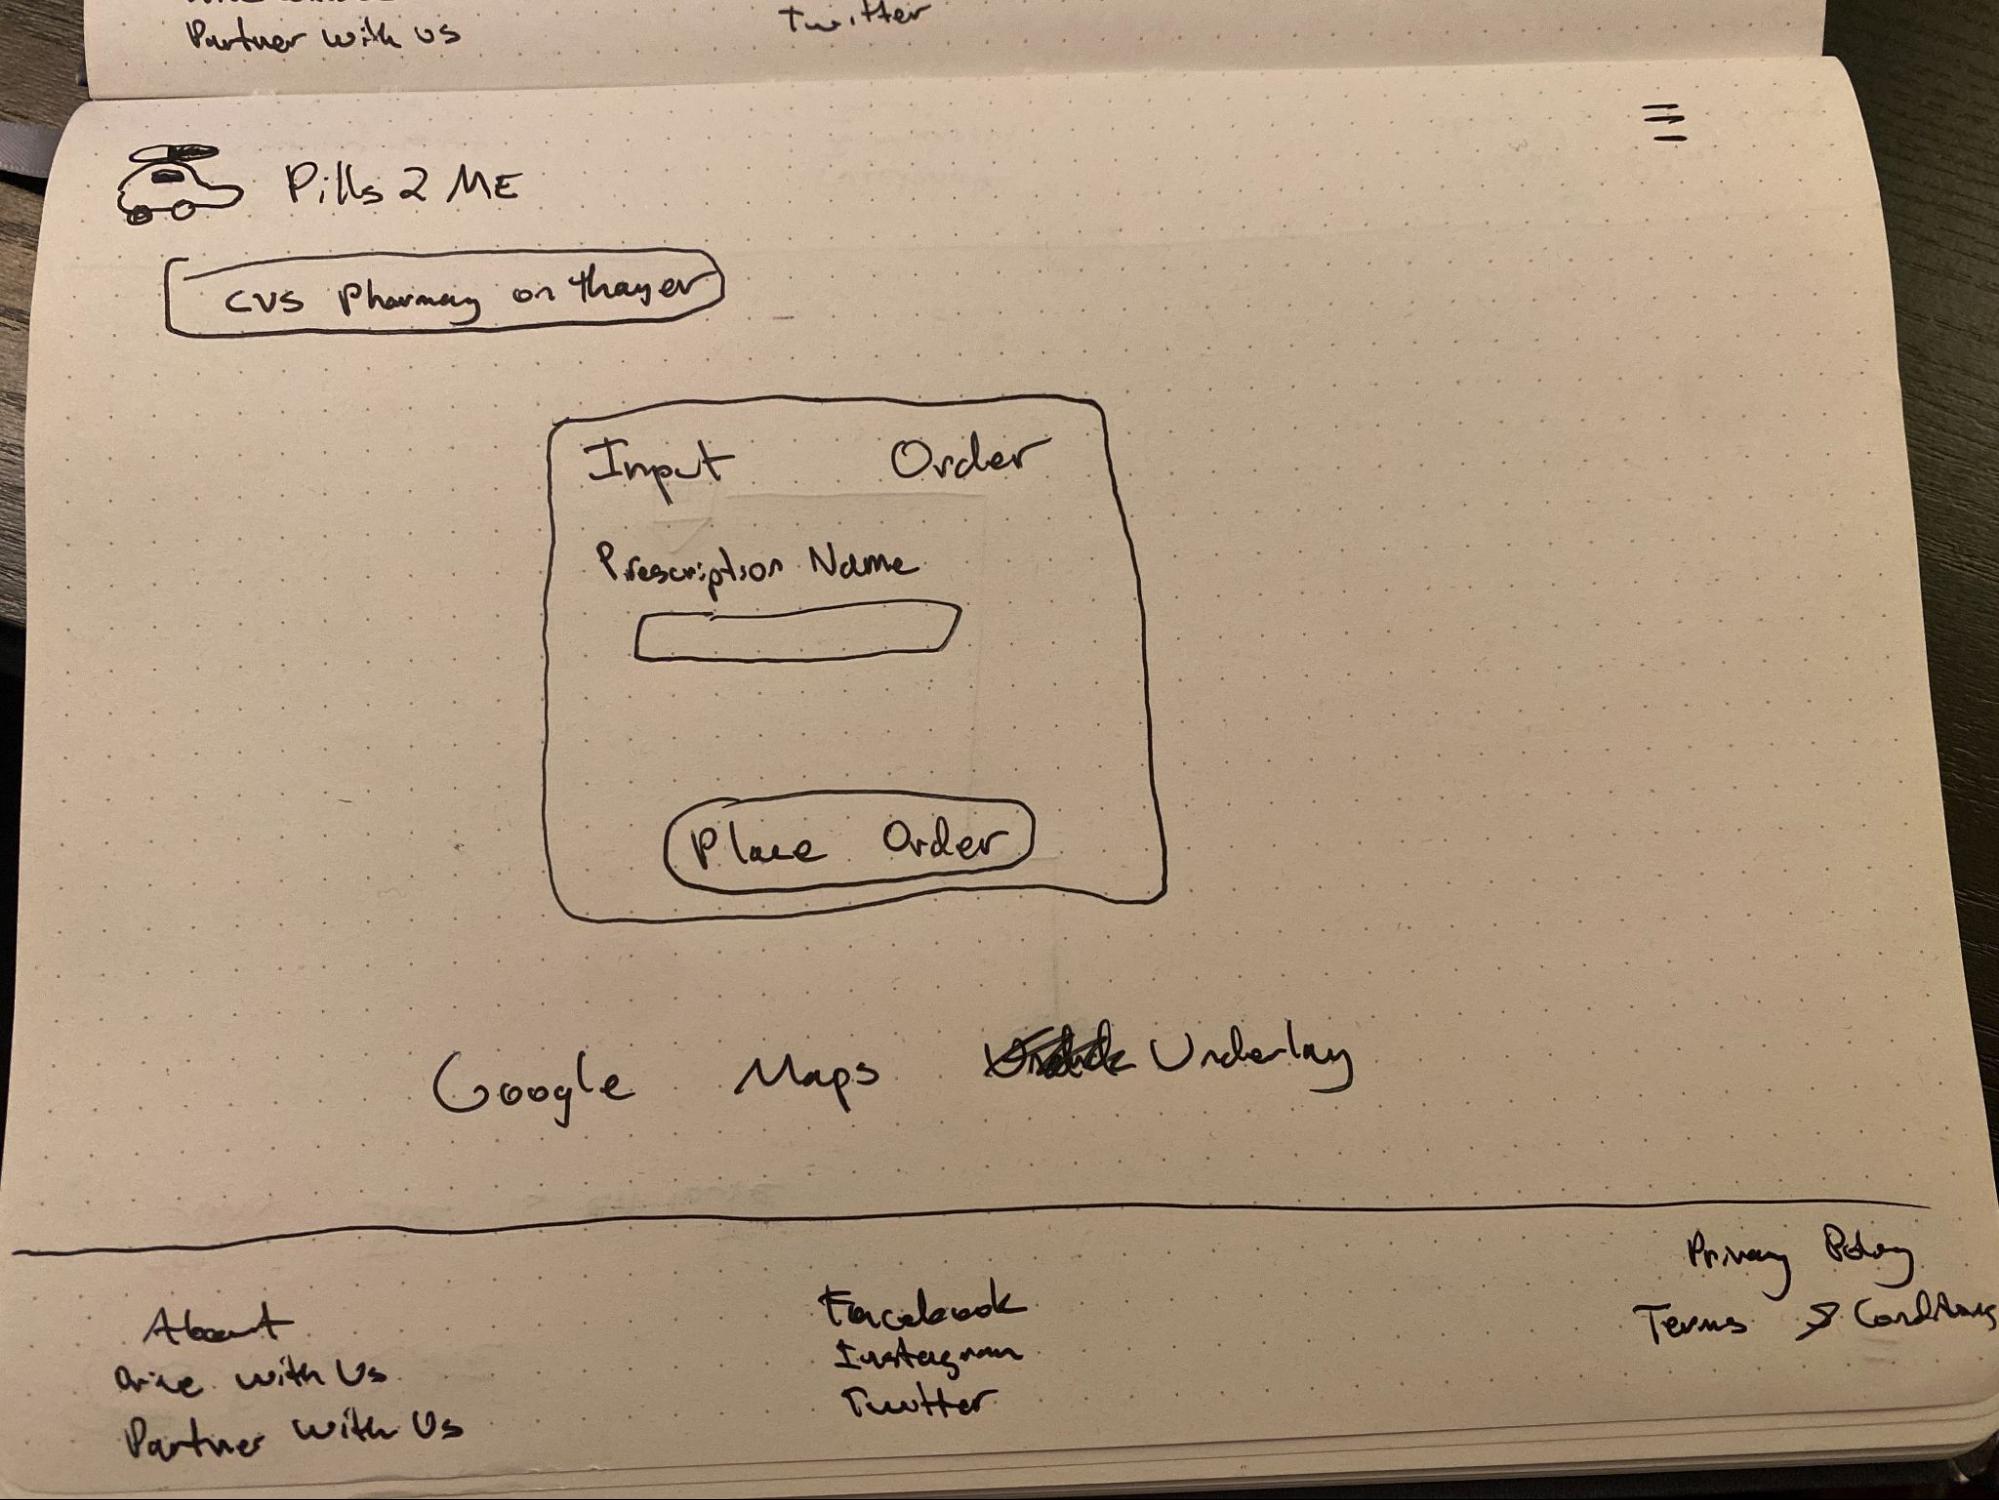 Partner with us
Twitter
Pills 2 ME
CVS Pharmacy on thayer
Input Order
Prescription Name
Place Order
Google Maps Underlay
About
Drive with Us
Partner with Us
Facebook
Instagram
Twitter
Privacy Policy
Terms & Conditions